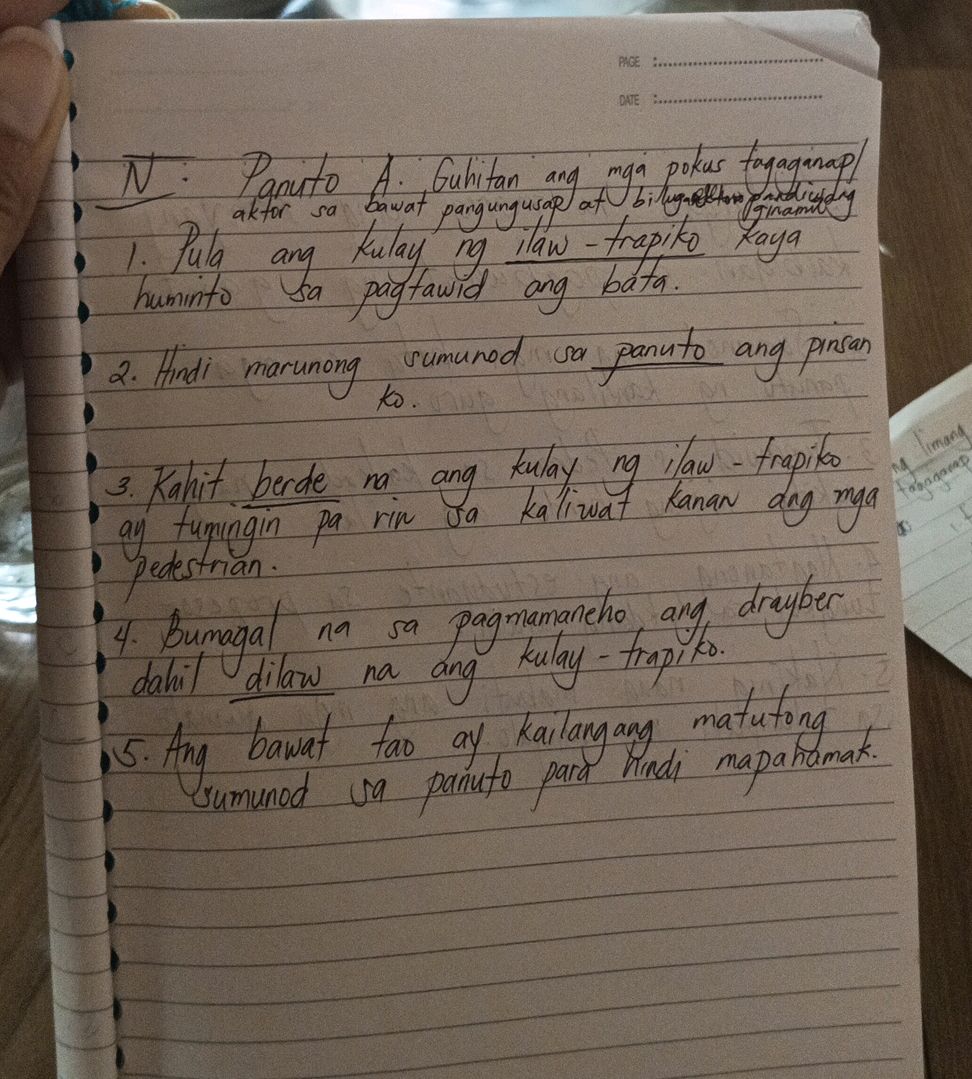 PAGE :
DATE :
N : Panuto A. Guhitan ang mga pokus tagaganap/
aktor sa bawat pangungusap at
ginamit
1. Pula ang kulay ng ilaw - trapiko kaya
huminto sa pagtawid ang bata.
2. Hindi marunong sumunod sa panuto ang pinsan
ko.
3. Kahit berde na ang kulay ng ilaw - trapiko
ay tumingin pa rin sa kaliwat kanan ang mga
pedestrian.
4. Bumagal na sa pagmamaneho ang drayber
dahil dilaw na ang kulay - trapiko.
5. Ang bawat tao ay kailangang matutong
sumunod sa panuto para hindi mapahamak.
ng limang
tagaganap
1.